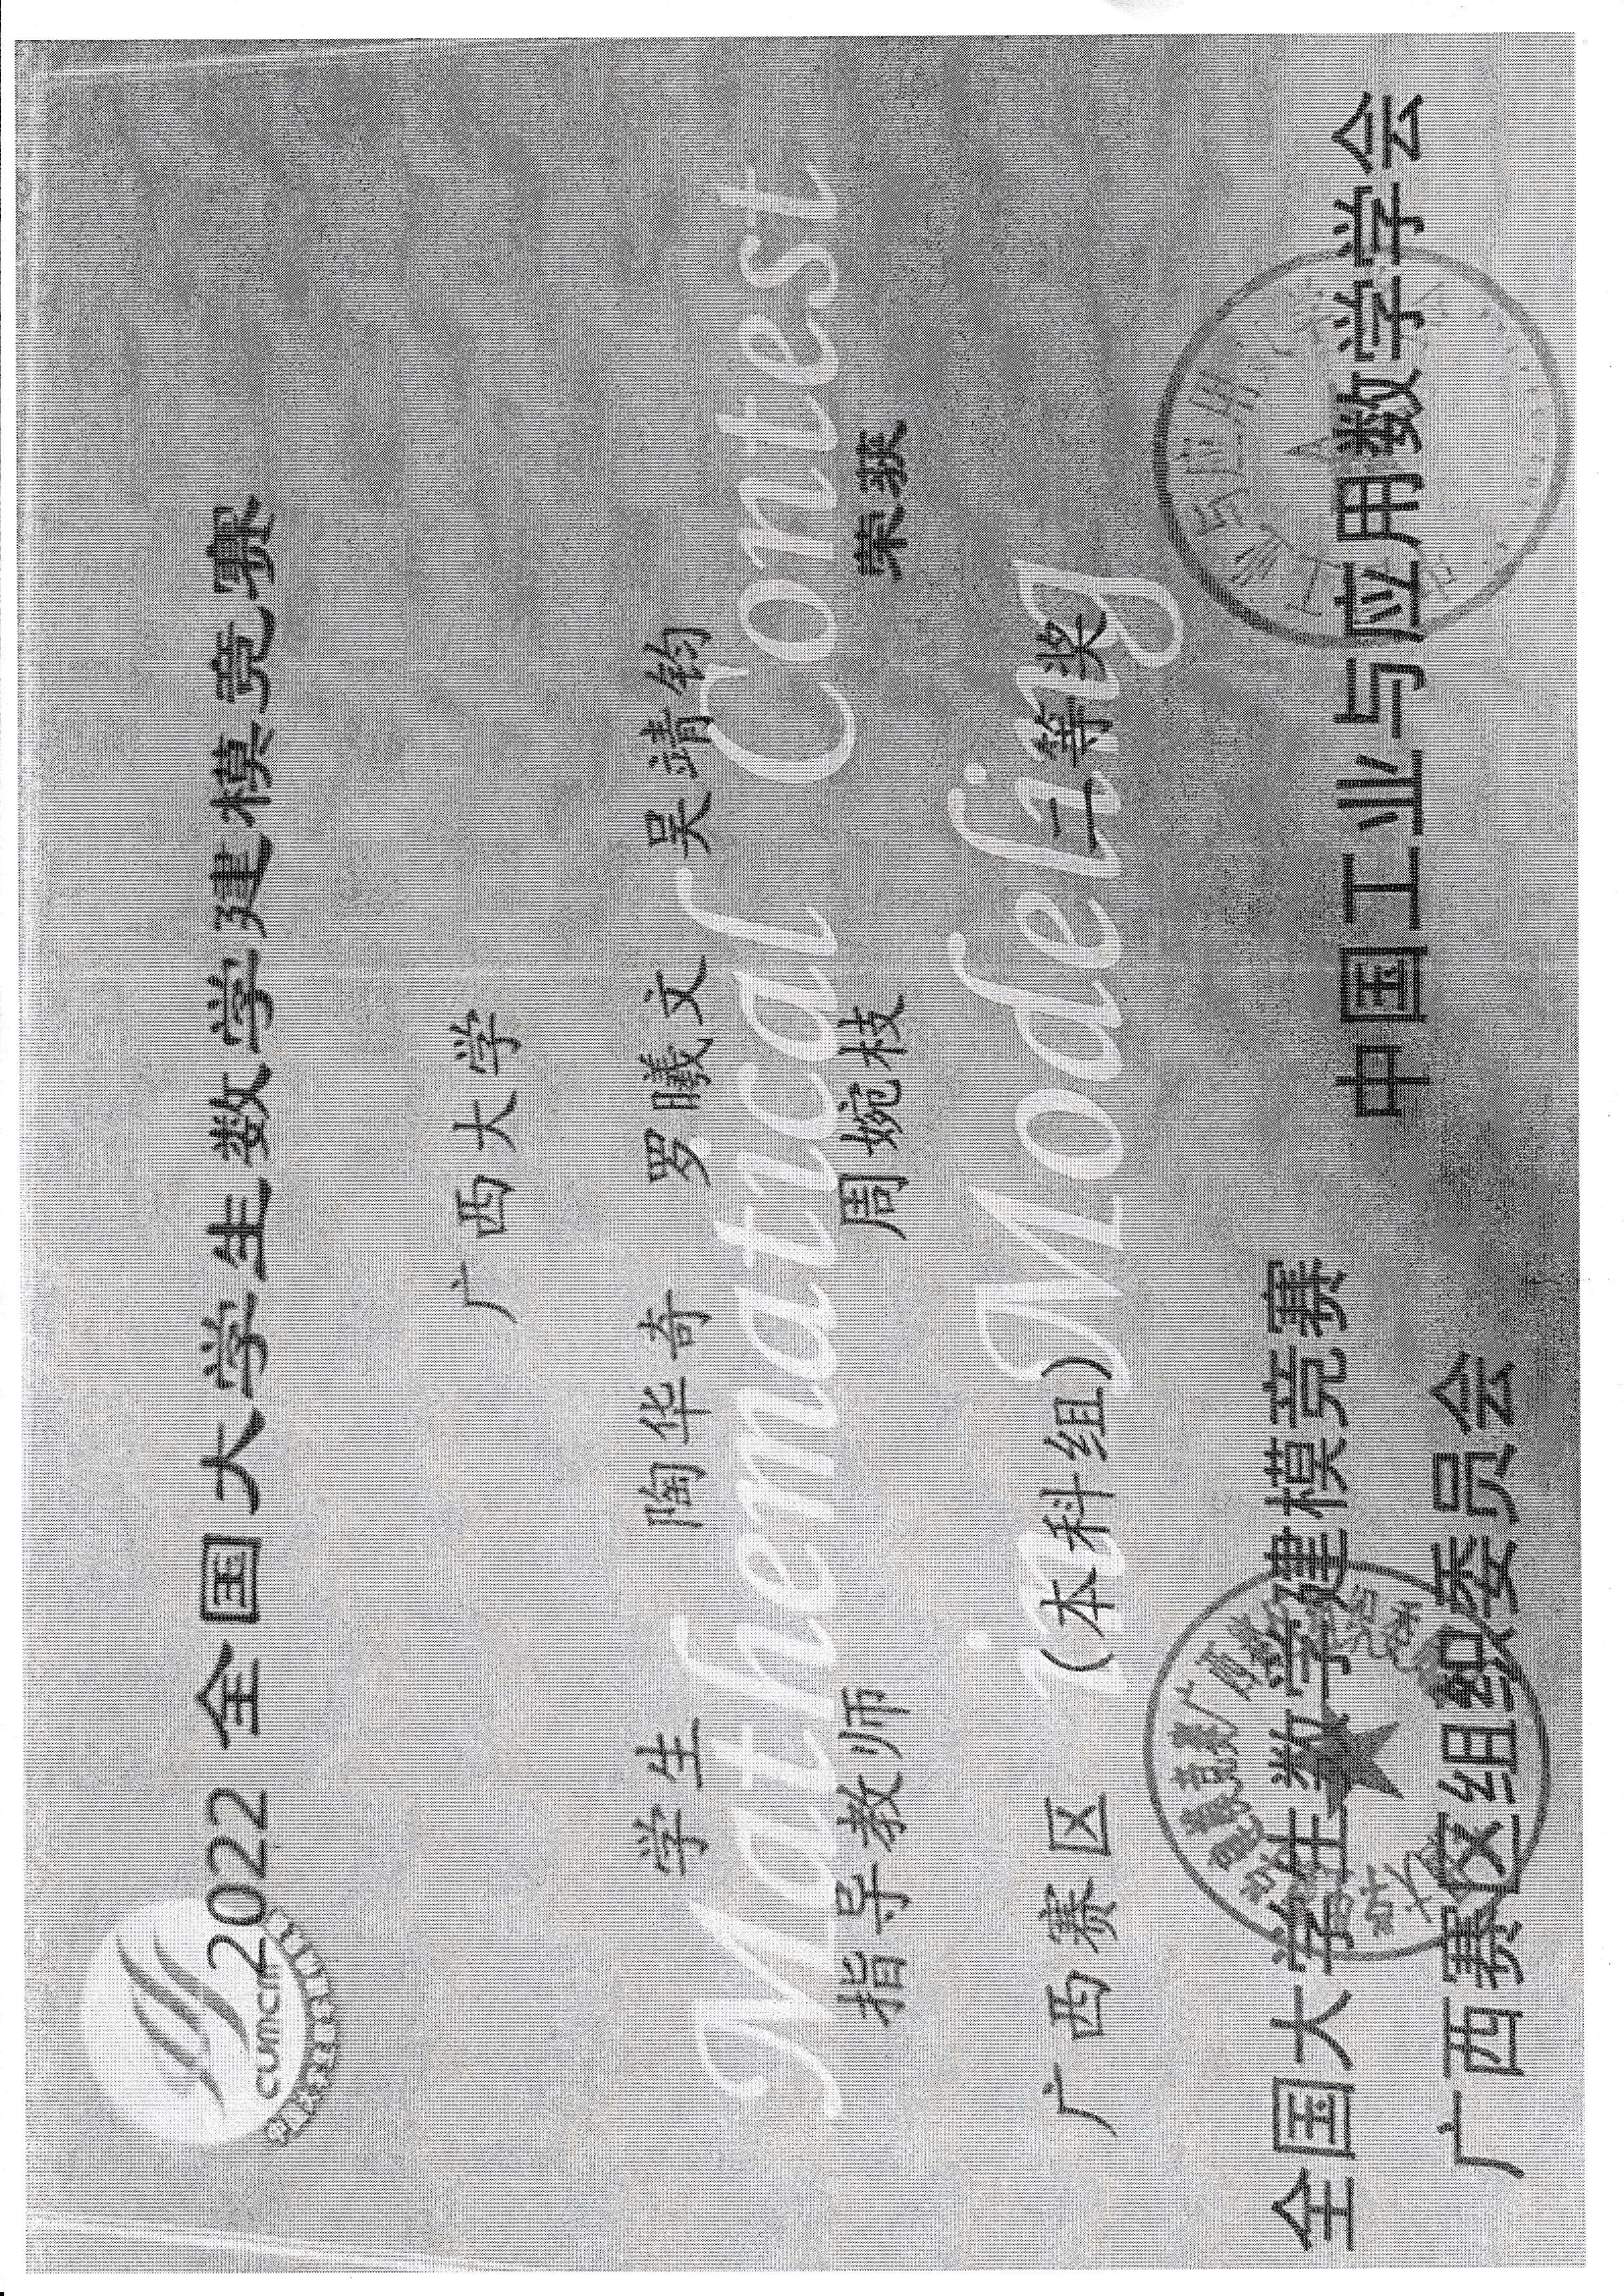 CUMCM
2022 全国大学生数学建模竞赛
广西大学
学生 陶华奇 罗曦文 吴靖钧
Mathematical Contest
指导教师 周婉枝 荣获
in Modeling
广西赛区 (本科组) 二等奖
全国大学生数学建模竞赛
广西赛区组织委员会
中国工业与应用数学学会